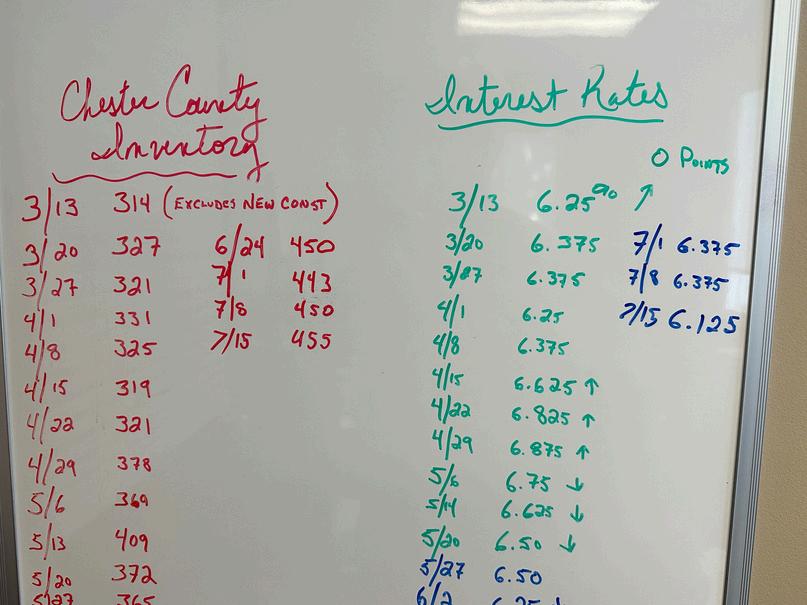 Chester County
Inventory
3/13 314 (EXCLUDES NEW CONST)
3/20 327
3/27 321
4/1 331
4/8 325
4/15 319
4/22 321
4/29 378
5/6 369
5/13 409
5/20 372
5/27 365
6/24 450
7/1 443
7/8 450
7/15 455
Interest Rates
0 POINTS
3/13 6.25% ↑
3/20 6.375
3/27 6.375
4/1 6.25
4/8 6.375
4/15 6.625 ↑
4/22 6.825 ↑
4/29 6.875 ↑
5/6 6.75 ↓
5/14 6.625 ↓
5/20 6.50 ↓
5/27 6.50
7/1 6.375
7/8 6.375
7/15 6.125